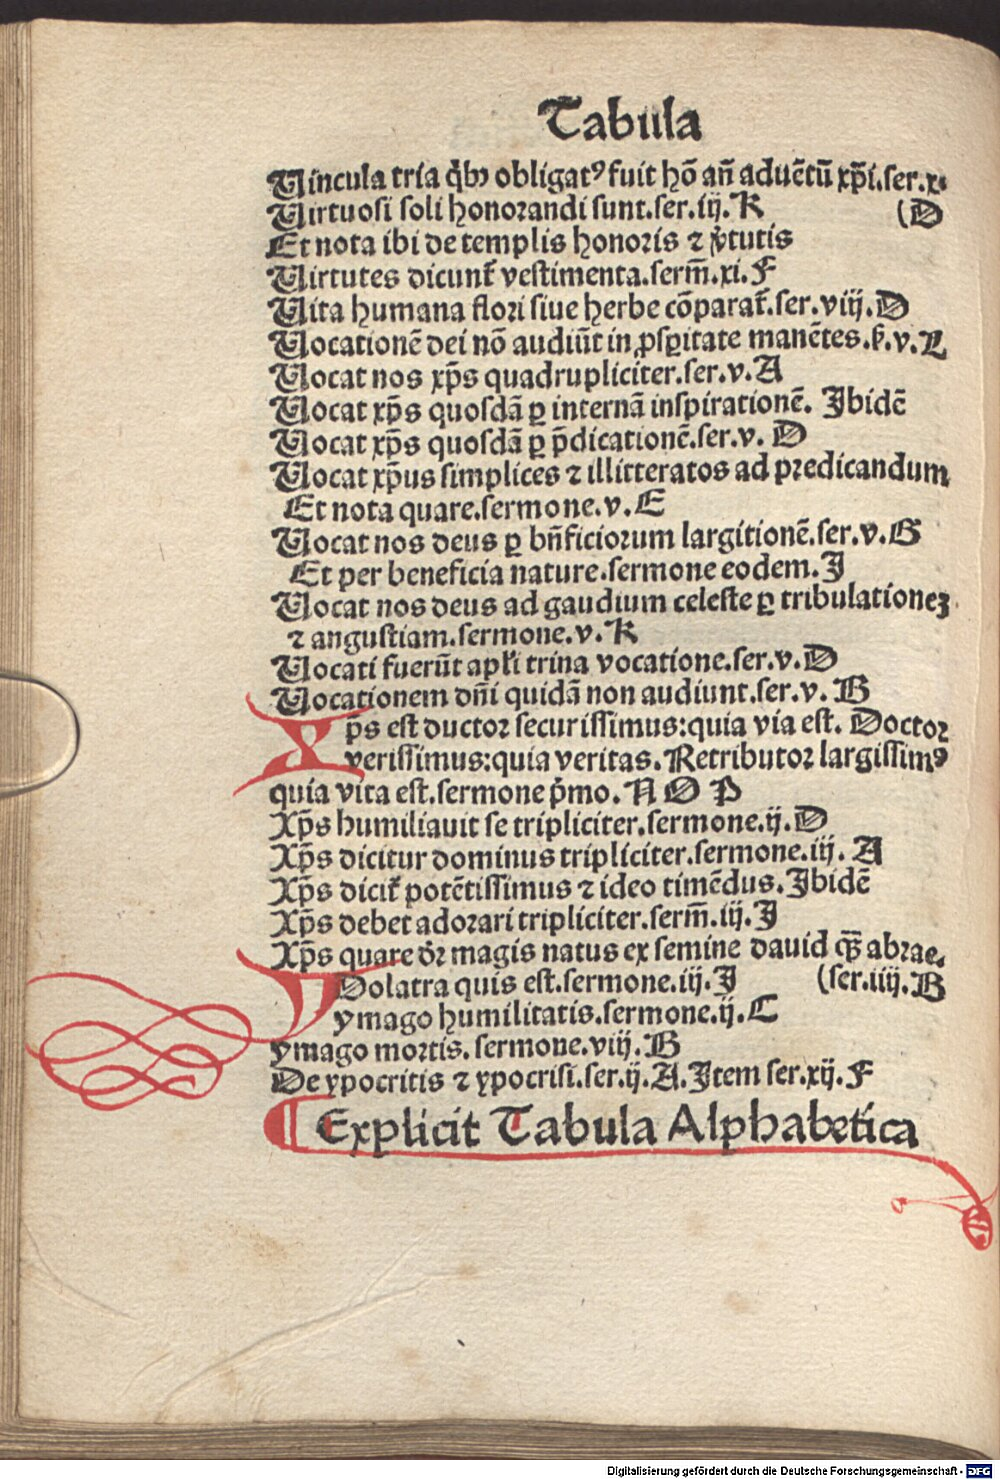 Tabula
Vincula tria q̃bꝰ obligatꝰ fuit hõ añ aduẽtũ xp̃i.ser.x.
Virtuosi soli honorandi sunt.ser.iij.K (D
Et nota ibi de templis honoris ⁊ v̓tutis
Virtutes dicunt̃ vestimenta.serm̃.xi.F
Vita humana flori siue herbe cõparat̃.ser.viij.D
Vocationẽ dei nõ audiũt in ꝓsꝑitate manẽtes.s̃.v.L
Vocat nos xp̃s quadrupliciter.ser.v.A
Vocat xp̃s quosdã ꝑ internã inspirationẽ. Ibidẽ
Vocat xp̃s quosdã ꝑ p̃dicationẽ.ser.v. D
Vocat xp̃us simplices ⁊ illitteratos ad predicandum
Et nota quare.sermone.v.E
Vocat nos deus ꝑ bñficiorum largitionẽ.ser.v.G
Et per beneficia nature.sermone eodem.I
Vocat nos deus ad gaudium celeste ꝑ tribulationeꝫ
⁊ angustiam.sermone.v.K
Vocati fuerũt apl̃i trina vocatione.ser.v.D
Vocationem dñi quidã non audiunt.ser.v. B
Xp̃s est ductor securissimus:quia via est. Doctor
verissimus:quia veritas. Retributor largissimꝰ
quia vita est.sermone p̓mo. N O P
Xp̃s humiliauit se tripliciter.sermone.ij.D
Xp̃s dicitur dominus tripliciter.sermone.iij. A
Xp̃s dicit̃ potẽtissimus ⁊ ideo timẽdus. Ibidẽ
Xp̃s debet adorari tripliciter.serm̃.iij.I
Xp̃s quare dr̃ magis natus ex semine dauid q̃ꝫ abrae.
YDolatra quis est.sermone.iij.I (ser.iiij.B
ymago humilitatis.sermone.ij.C
ymago mortis. sermone.viij.B
De ypocritis ⁊ ypocrisi.ser.ij.A.Item ser.xij.F
¶ Explicit Tabula Alphabetica
Digitalisierung gefördert durch die Deutsche Forschungsgemeinschaft - DFG